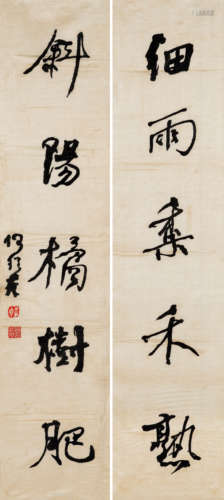 細雨禾熟
斜陽橘樹肥
何紹基